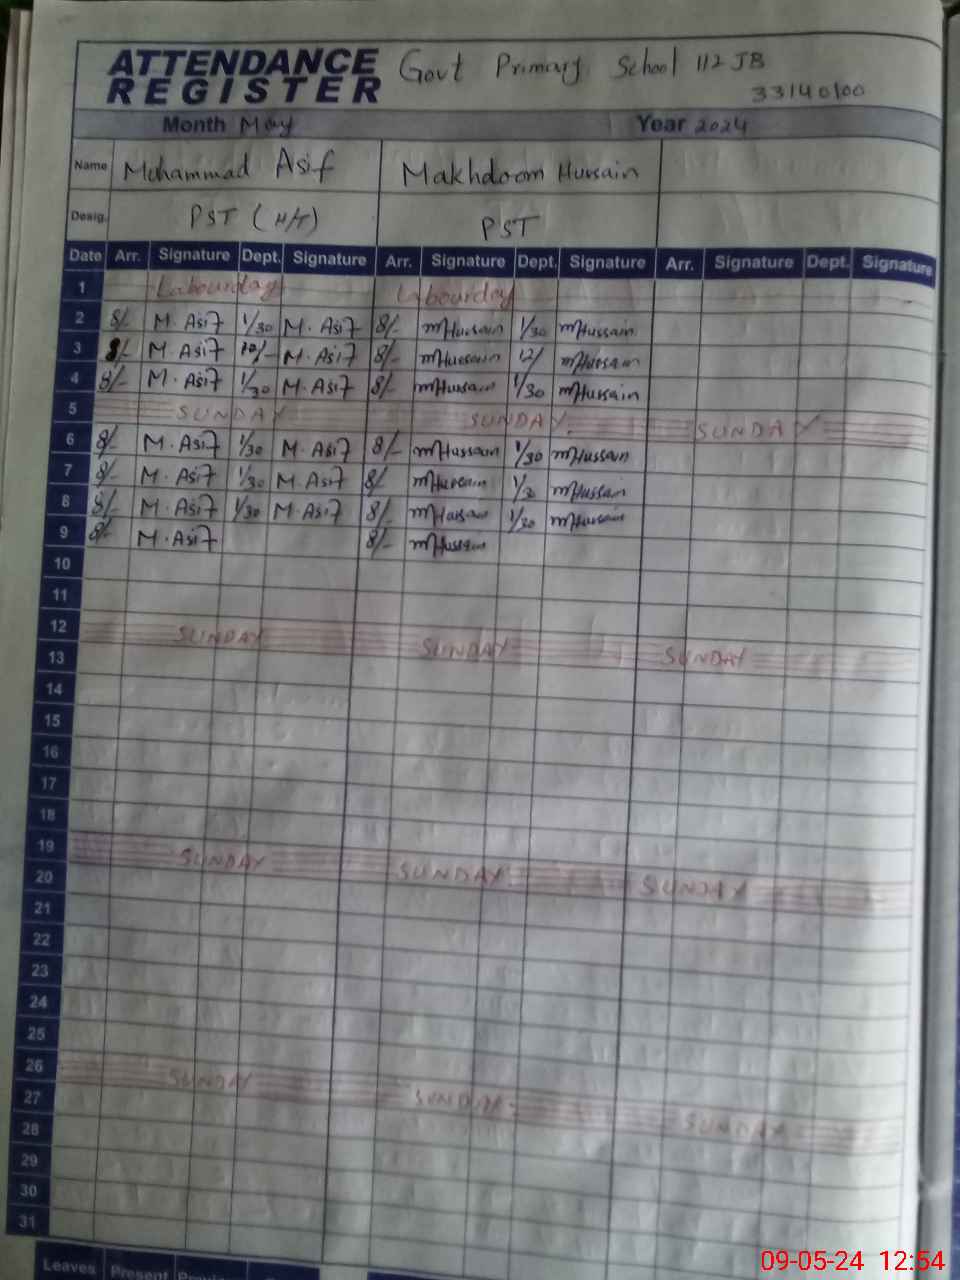 ATTENDANCE REGISTER Govt Primary School 112 JB
33140100
Month May Year 2024
Name Muhammad Asif Makhdoom Hussain
Desig. PST (H/T) PST
Date Arr. Signature Dept. Signature Arr. Signature Dept. Signature Arr. Signature Dept. Signature
1 Labourday Labourday
2 8/- M. Asif 1/30 M. Asif 8/- mHussain 1/30 mHussain
3 8/- M. Asif 12/- M. Asif 8/- mHussain 12/ mHussain
4 8/- M. Asif 1/30 M. Asif 8/- mHussain 1/30 mHussain
5 SUNDAY SUNDAY SUNDAY
6 8/- M. Asif 1/30 M. Asif 8/- mHussain 1/30 mHussain
7 8/- M. Asif 1/30 M. Asif 8/ mHussain 1/30 mHussain
8 8/- M. Asif 1/30 M. Asif 8/- mHussain 1/30 mHussain
9 8/- M. Asif 8/- mHussain
10
11
12 SUNDAY SUNDAY SUNDAY
13
14
15
16
17
18
19 SUNDAY SUNDAY SUNDAY
20
21
22
23
24
25
26 SUNDAY SUNDAY SUNDAY
27
28
29
30
31
Leaves Present
09-05-24 12:54